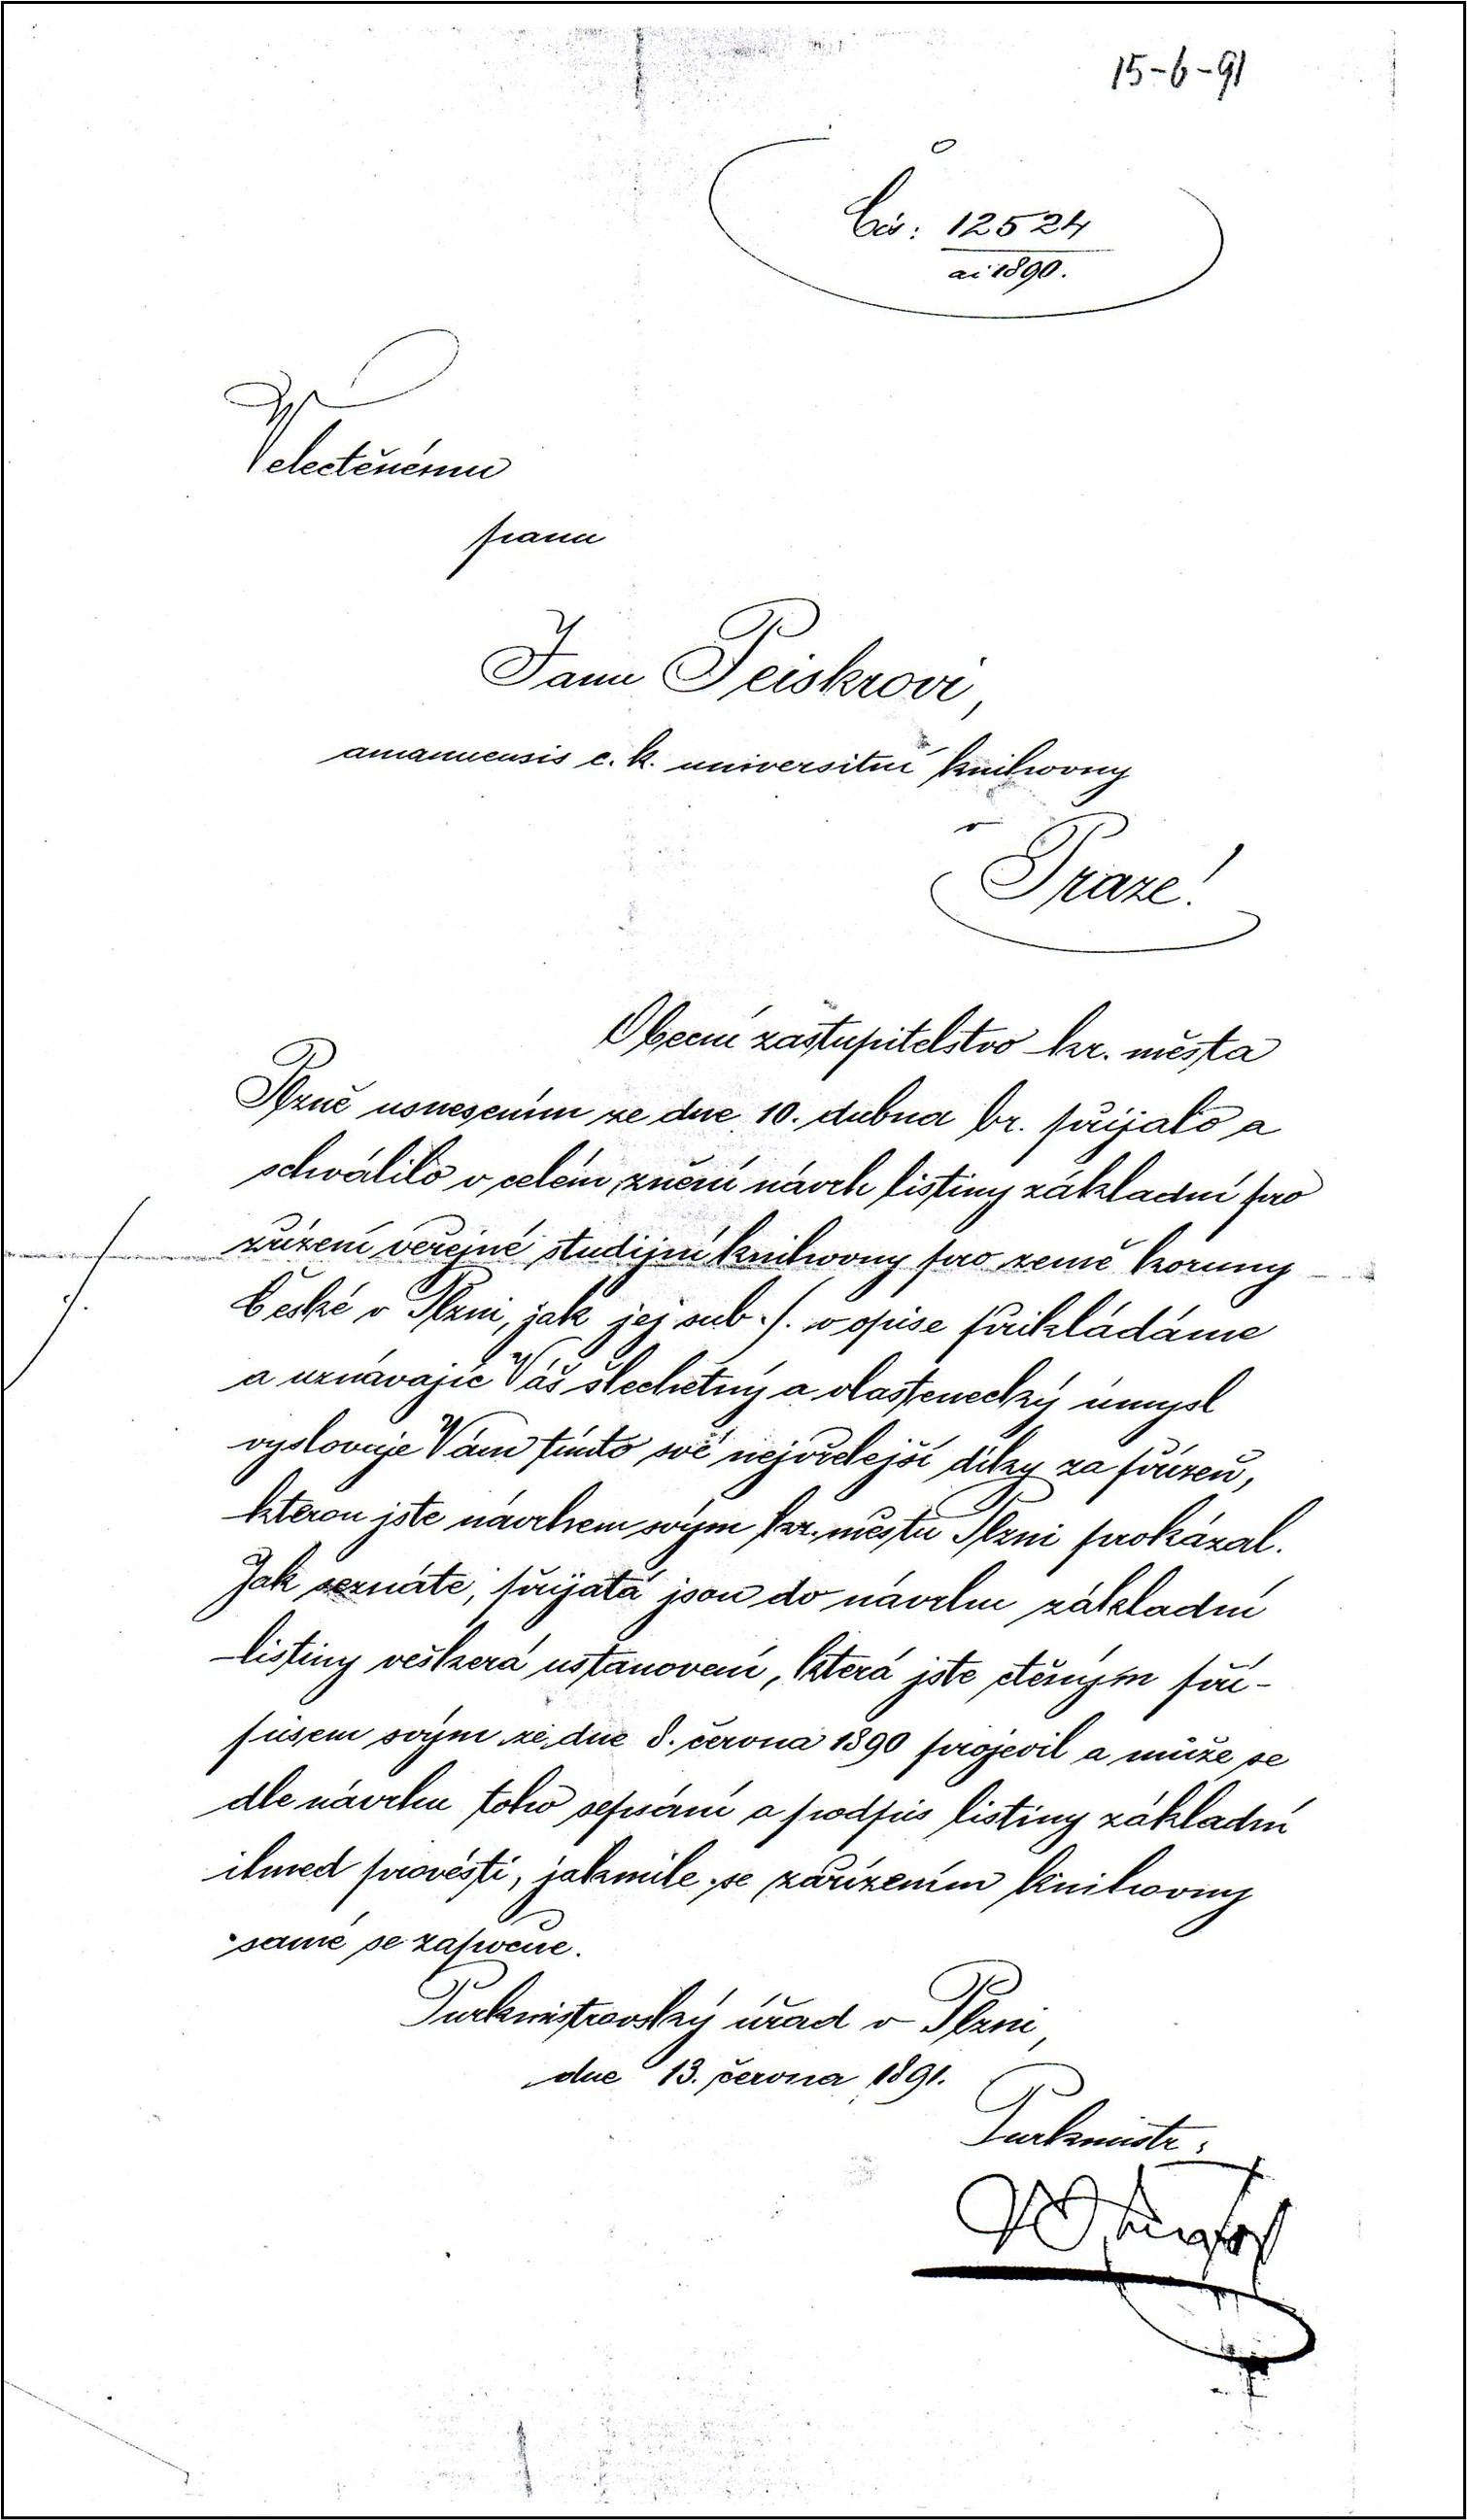 15-6-91
Čís: 12524
ai 1890.
Velectěnému
panu
Janu Peiskrovi,
amanuensis c. k. universitní knihovny
v
Praze!
Obecní zastupitelstvo kr. města
Plzně usnesením ze dne 10. dubna br. přijalo a
schválilo v celém znění návrh listiny základní pro
zřízení veřejné studijní knihovny pro země koruny
České v Plzni, jak jej sub ./. v opise přikládáme
a uznávajíc Váš šlechetný a vlastenecký úmysl
vyslovuje Vám tímto své nejvřelejší díky za přízeň,
kterou jste návrhem svým kr. městu Plzni prokázal.
Jak seznáte, přijata jsou do návrhu základní
listiny veškerá ustanovení, která jste ctěným pří-
pisem svým ze dne 8. června 1890 projevil a může se
dle návrhu toho sepsání a podpis listiny základní
ihned provésti, jakmile se zařízením knihovny
samé se započne.
./.
Purkmistrovský úřad v Plzni,
dne 13. června 1891.
Purkmistr: